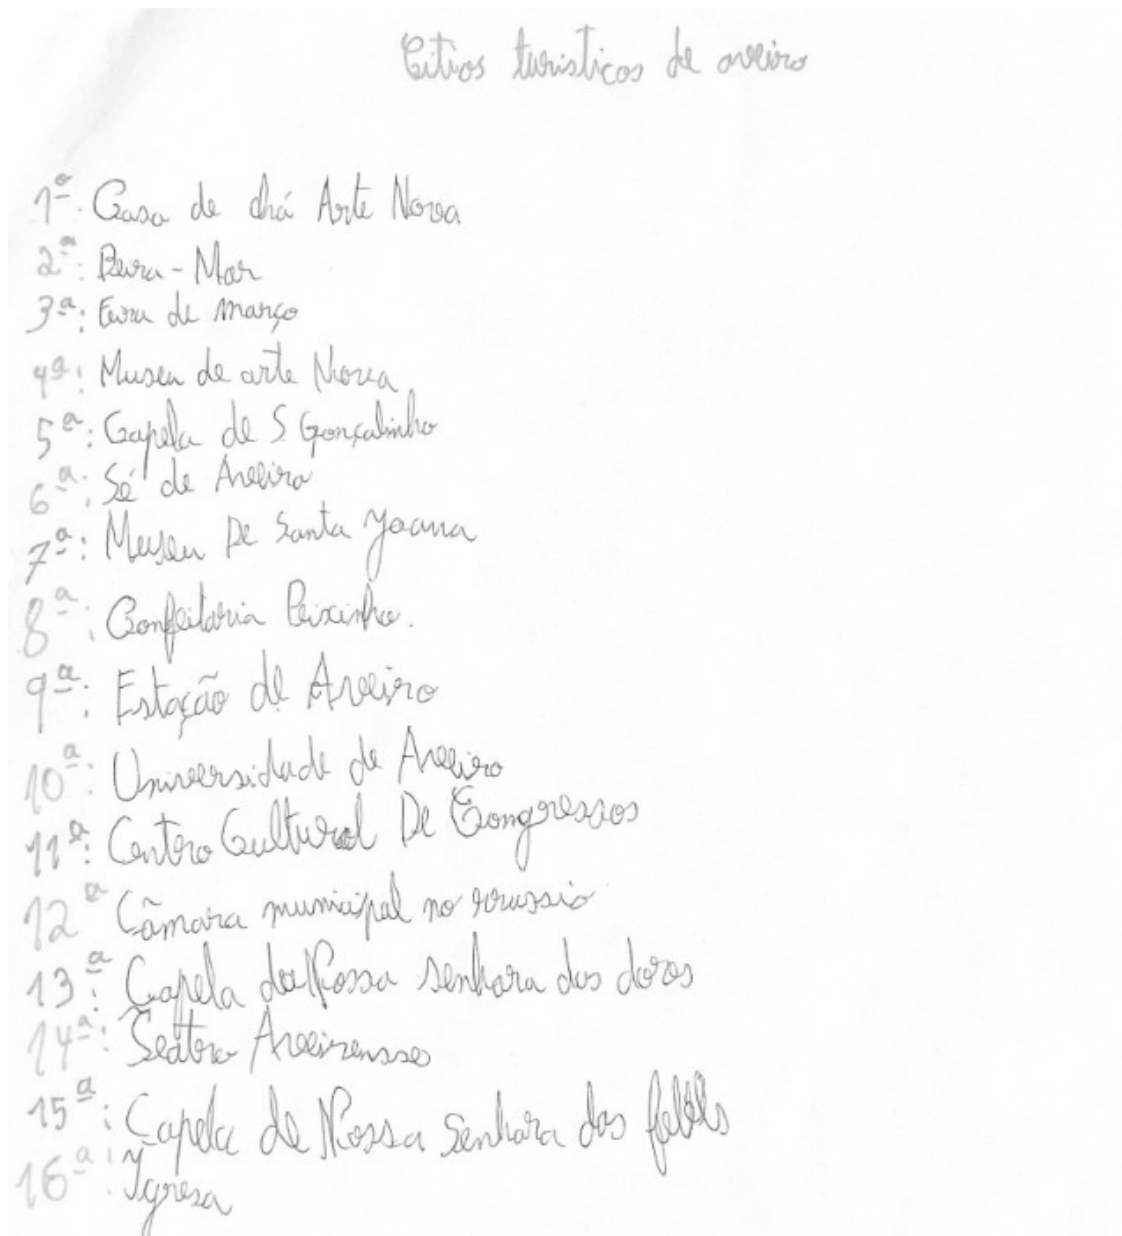 Citios turisticos de aveiro
1ª: Casa de chá Arte Nova
2ª: Beira-Mar
3ª: Eeira de março
4ª: Museu de arte Nova
5ª: Capela de S Gonçalinho
6ª: Sé de Aveiro
7ª: Museu De Santa Joana
8ª: Confeitaria Peixinho.
9ª: Estação de Aveiro
10ª: Universidade de Aveiro
11ª: Centro Cultural De Congressos
12ª Câmara municipal no roussio
13ª: Capela da Nossa senhara das dores
14ª: Teatro Aveirensses
15ª: Capela de Nossa Senhara das
16ª: Igresa